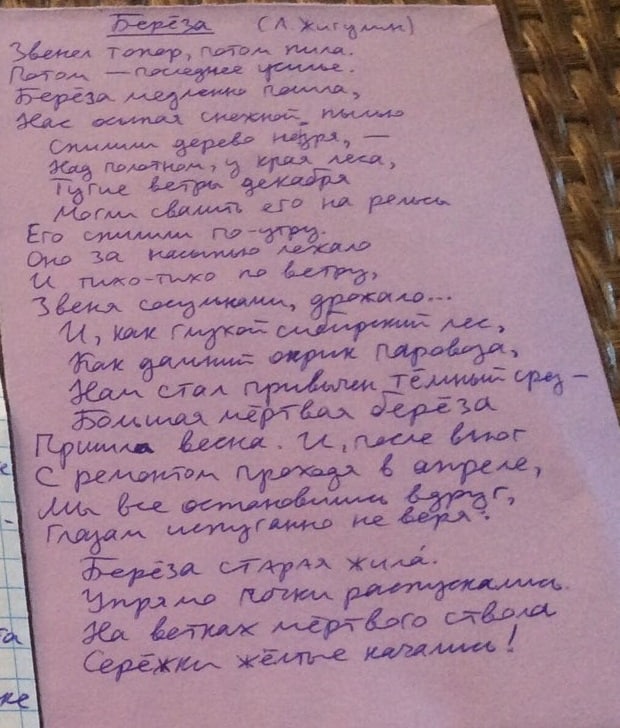 Берёза (А. Жигулин)
Звенел топор, потом пила.
Потом — последнее усилье.
Берёза медленно пошла,
Нас осыпая снежной пылью
Спилили дерево не зря, —
Над полотном, у края леса,
Тугие ветры декабря
Могли свалить его на рельсы
Его спилили по-утру.
Оно за насыпью лежало
И тихо-тихо по ветру,
Звеня сосульками, дрожало...
И, как глухой сибирский лес,
Как дальний окрик паровоза,
Нам стал привычен тёмный срез –
Большая мёртвая берёза
Пришла весна. И, после вьюг
С ремонтом проходя в апреле,
Мы все остановились вдруг,
Глазам испуганно не веря:
Берёза старая жила.
Упрямо почки распускались.
На ветках мёртвого ствола
Серёжки жёлтые качались!
та
ке